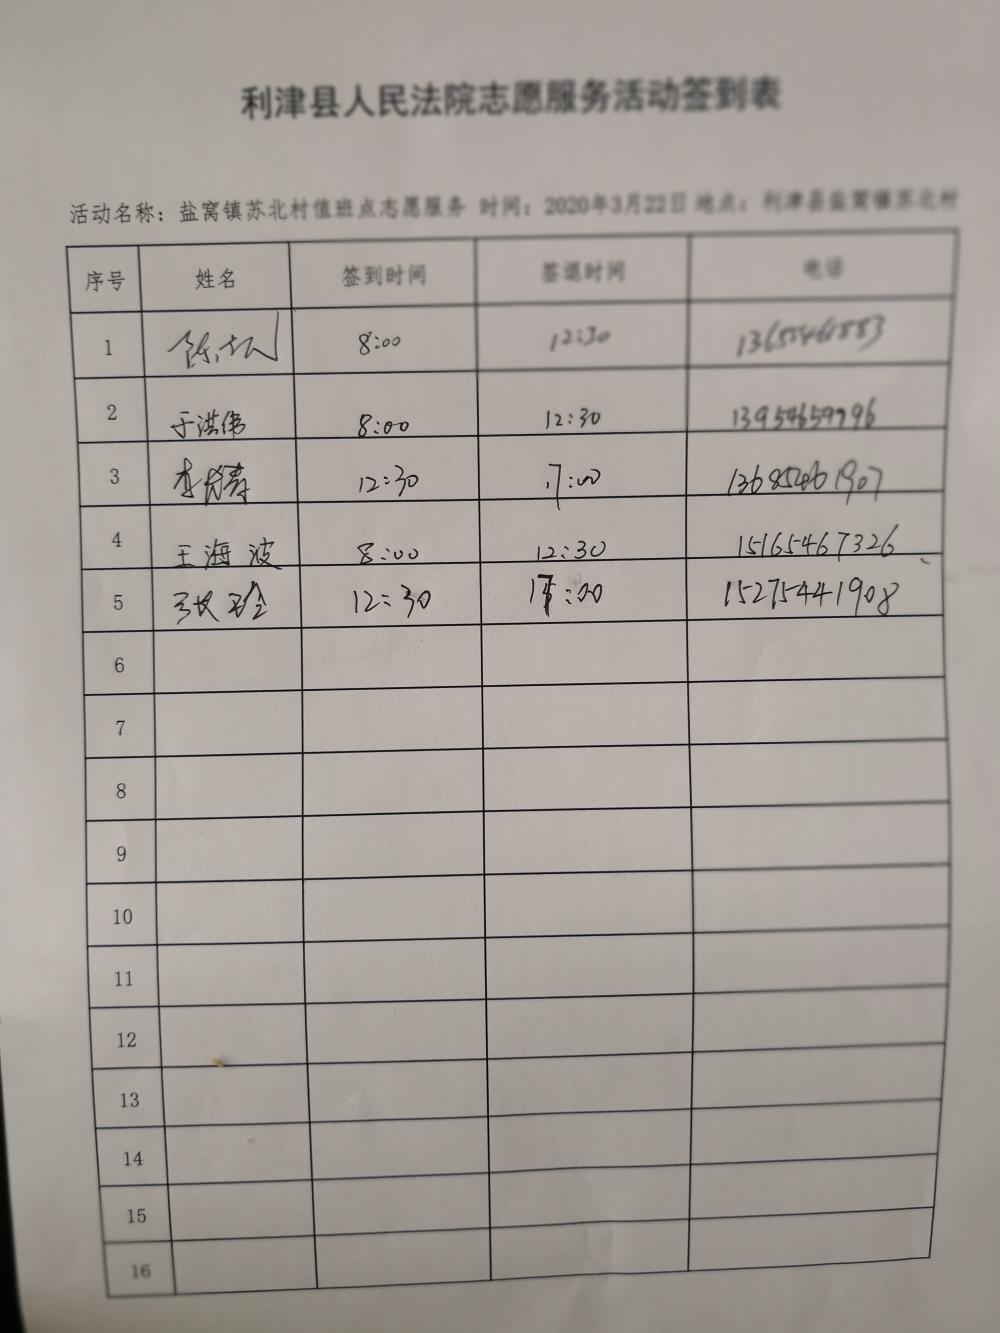 利津县人民法院志愿服务活动签到表
活动名称：盐窝镇苏北村值班点志愿服务 时间：2020年3月22日 地点：利津县盐窝镇苏北村
序号 姓名 签到时间 签退时间 电话
1 8:00 12:30
2 于洪伟 8:00 12:30 13954659796
3 12:30 17:00 13685461907
4 王海波 8:00 12:30 15165467326
5 12:30 17:00 15275441908
6
7
8
9
10
11
12
13
14
15
16